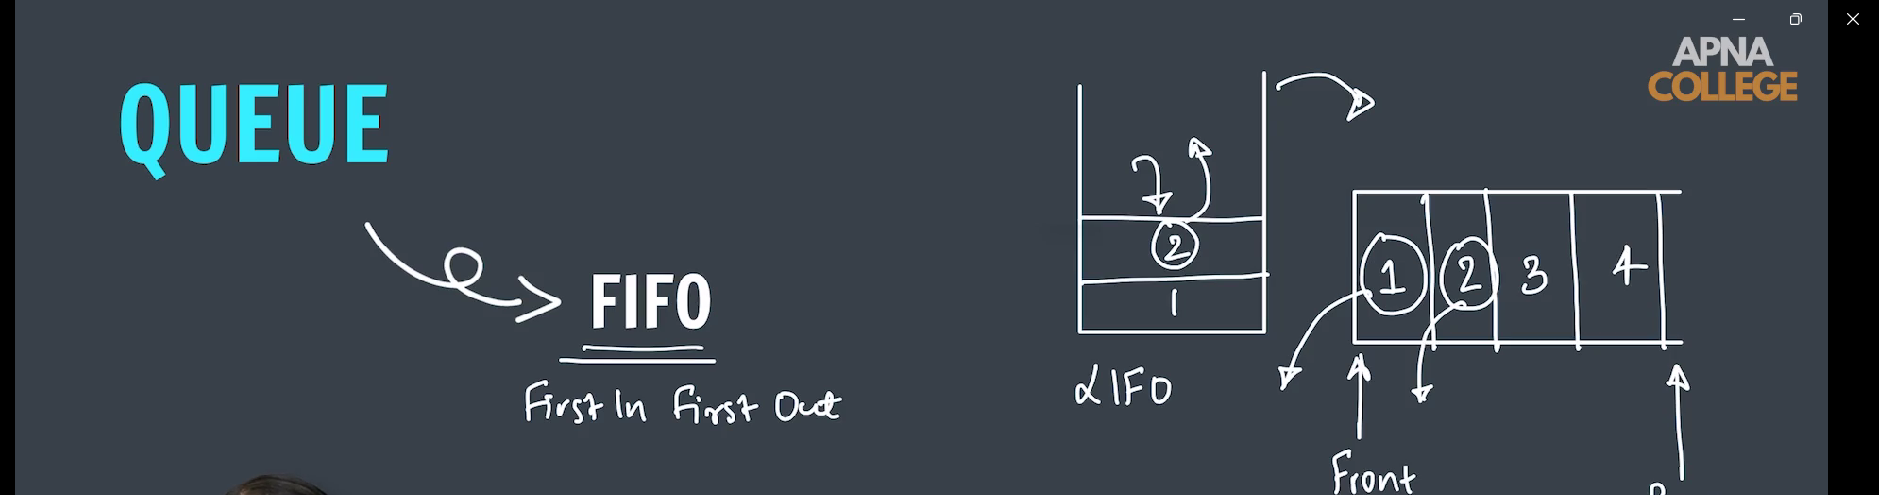 APNA
COLLEGE
QUEUE
FIFO
First In First Out
2
1
LIFO
1 2 3 4
Front